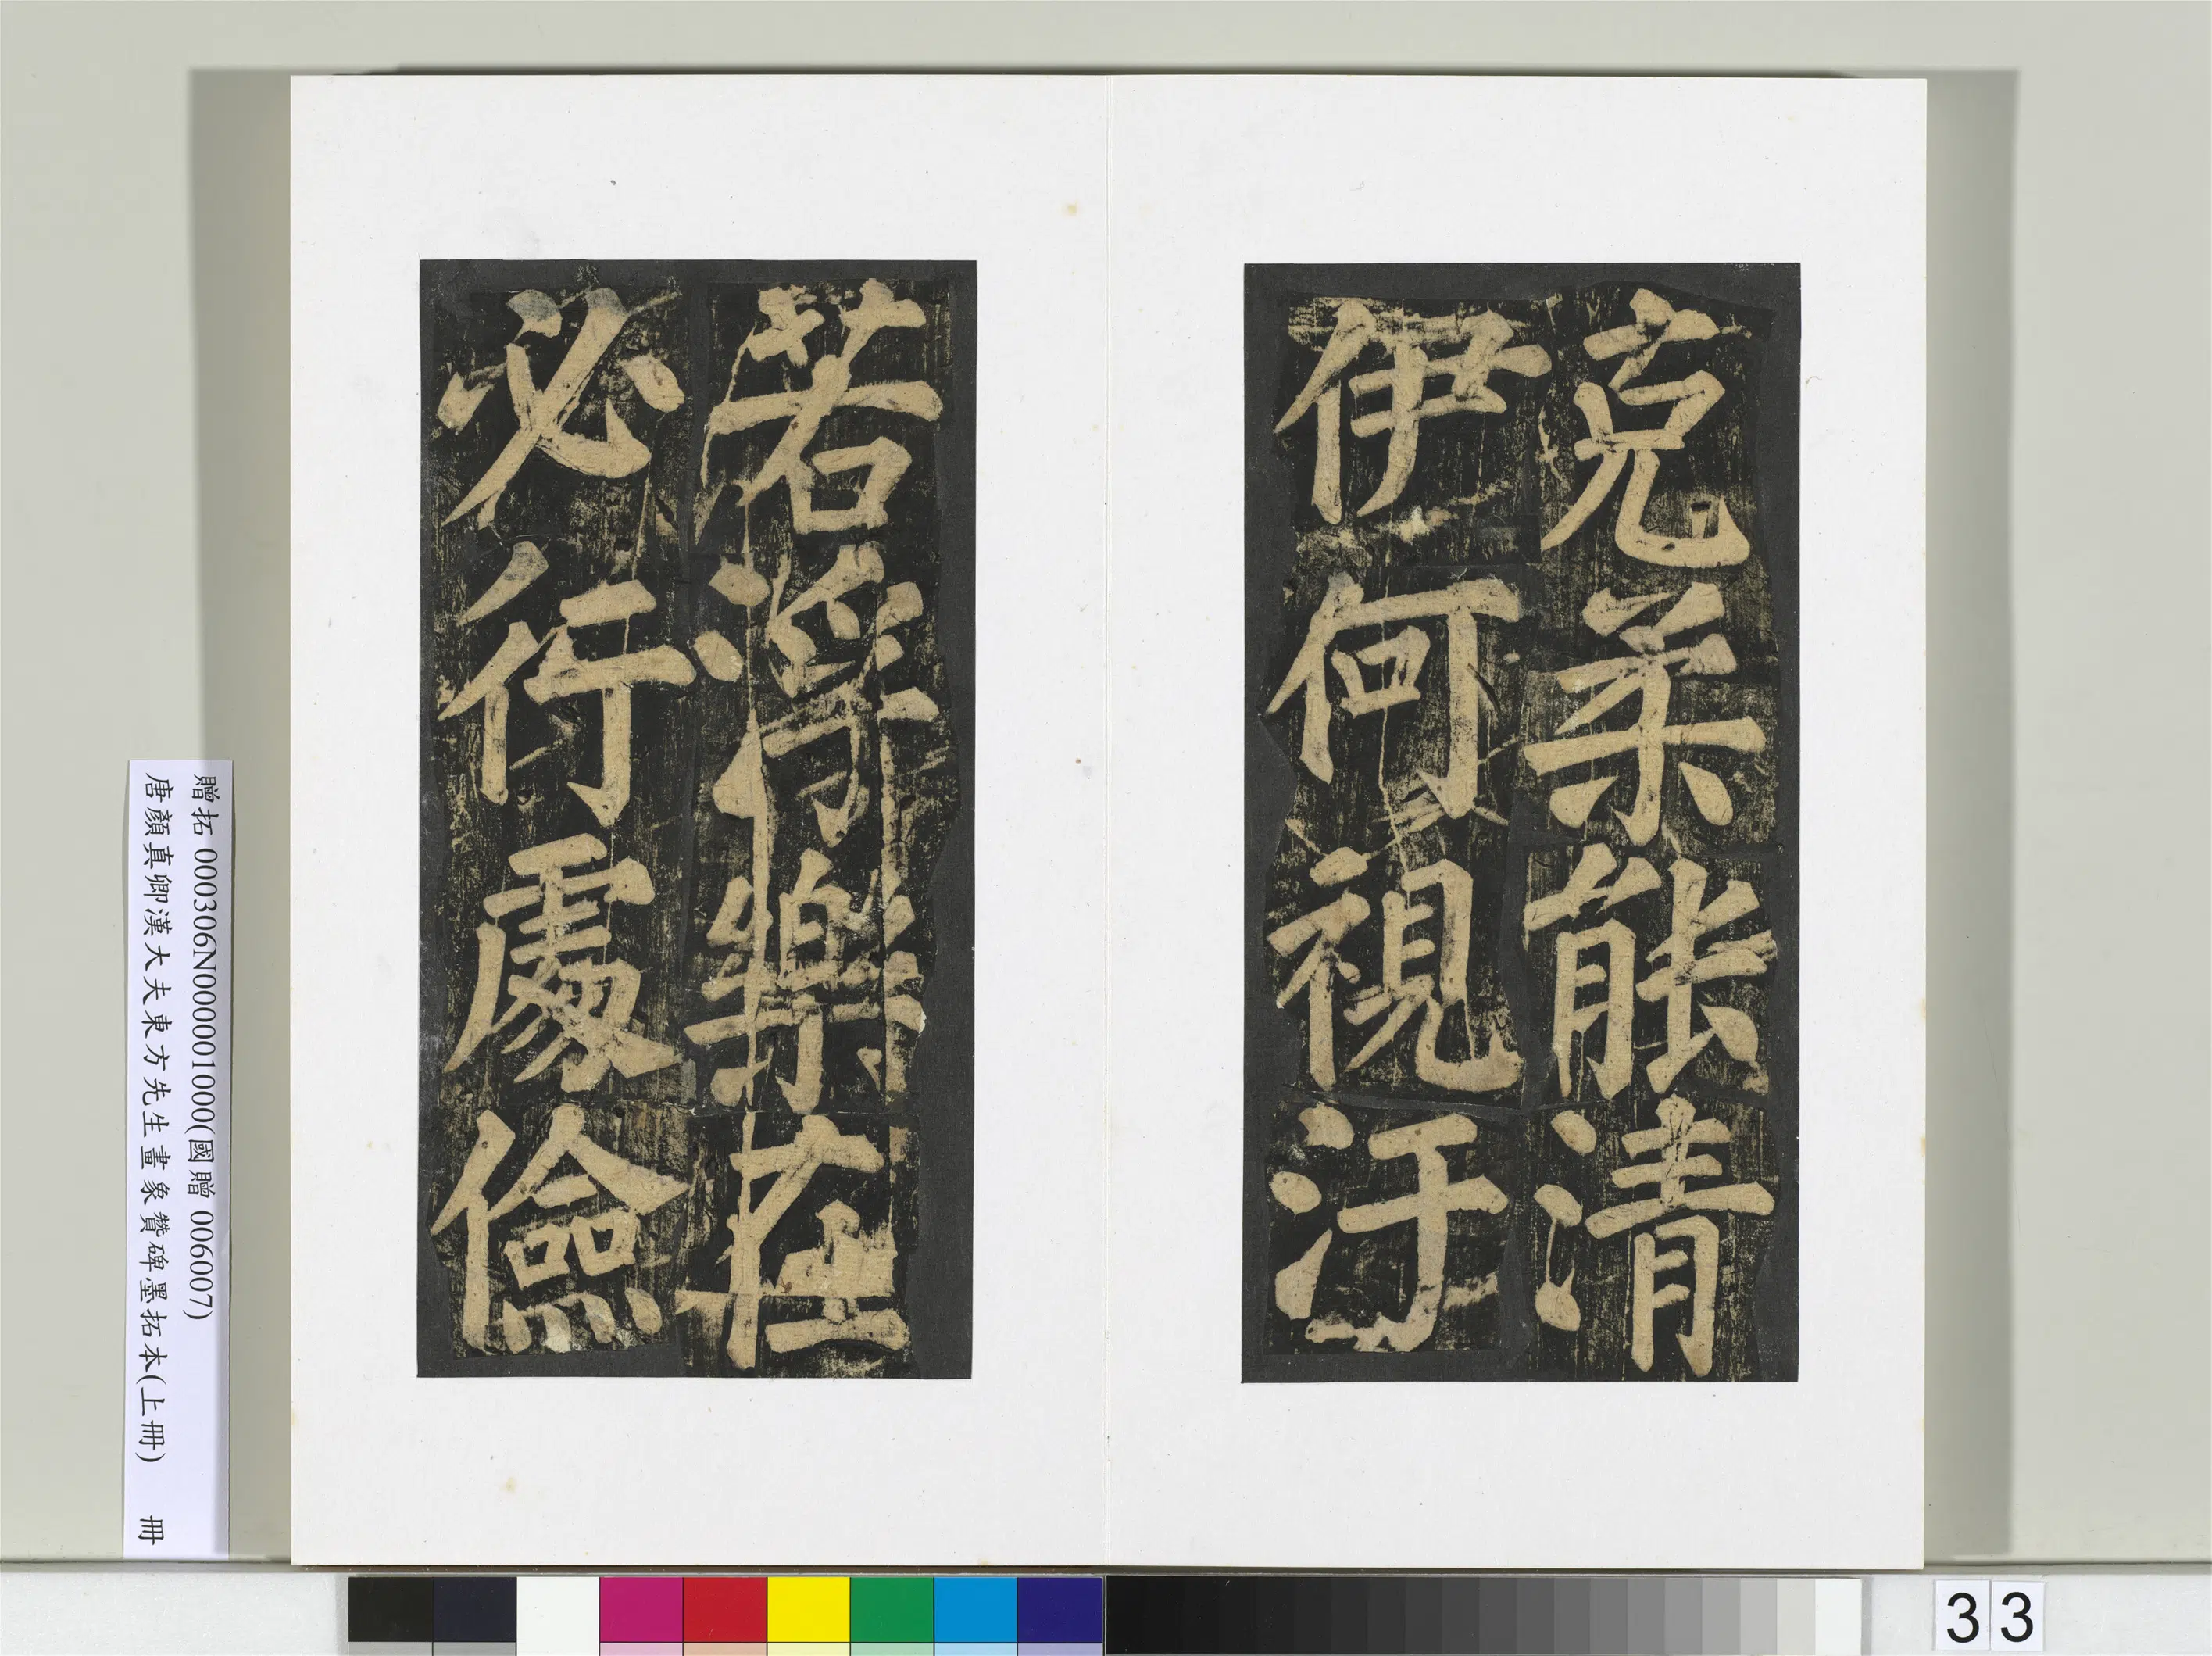 克柔能清
伊何視汙
若浮樂在
必行處儉
贈拓 000306N0000001000(國贈 006007)
唐顏真卿漢大夫東方先生畫象贊碑墨拓本(上冊) 冊
33